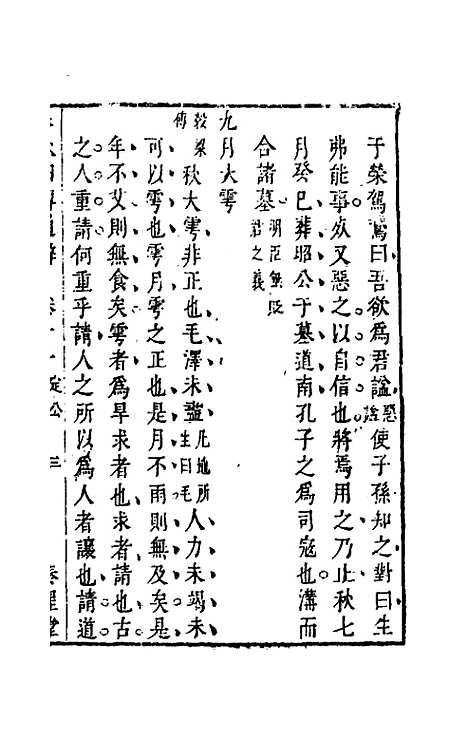 于榮駕鵞曰吾欲爲君謚惡謚使子孫知之對曰生
弗能事死又惡之以自信也將焉用之乃止秋七
月癸巳葬昭公于墓道南孔子之爲司寇也溝而
合諸墓明臣無貶君之義
九月大雩
穀梁傳秋大雩非正也毛澤未盡凡地所生曰毛人力未竭未
可以雩也雩月雩之正也是月不雨則無及矣是
年不艾則無食矣雩者爲旱求者也求者請也古
之人重請何重乎請人之所以爲人者讓也請道
卷十一 定公 三